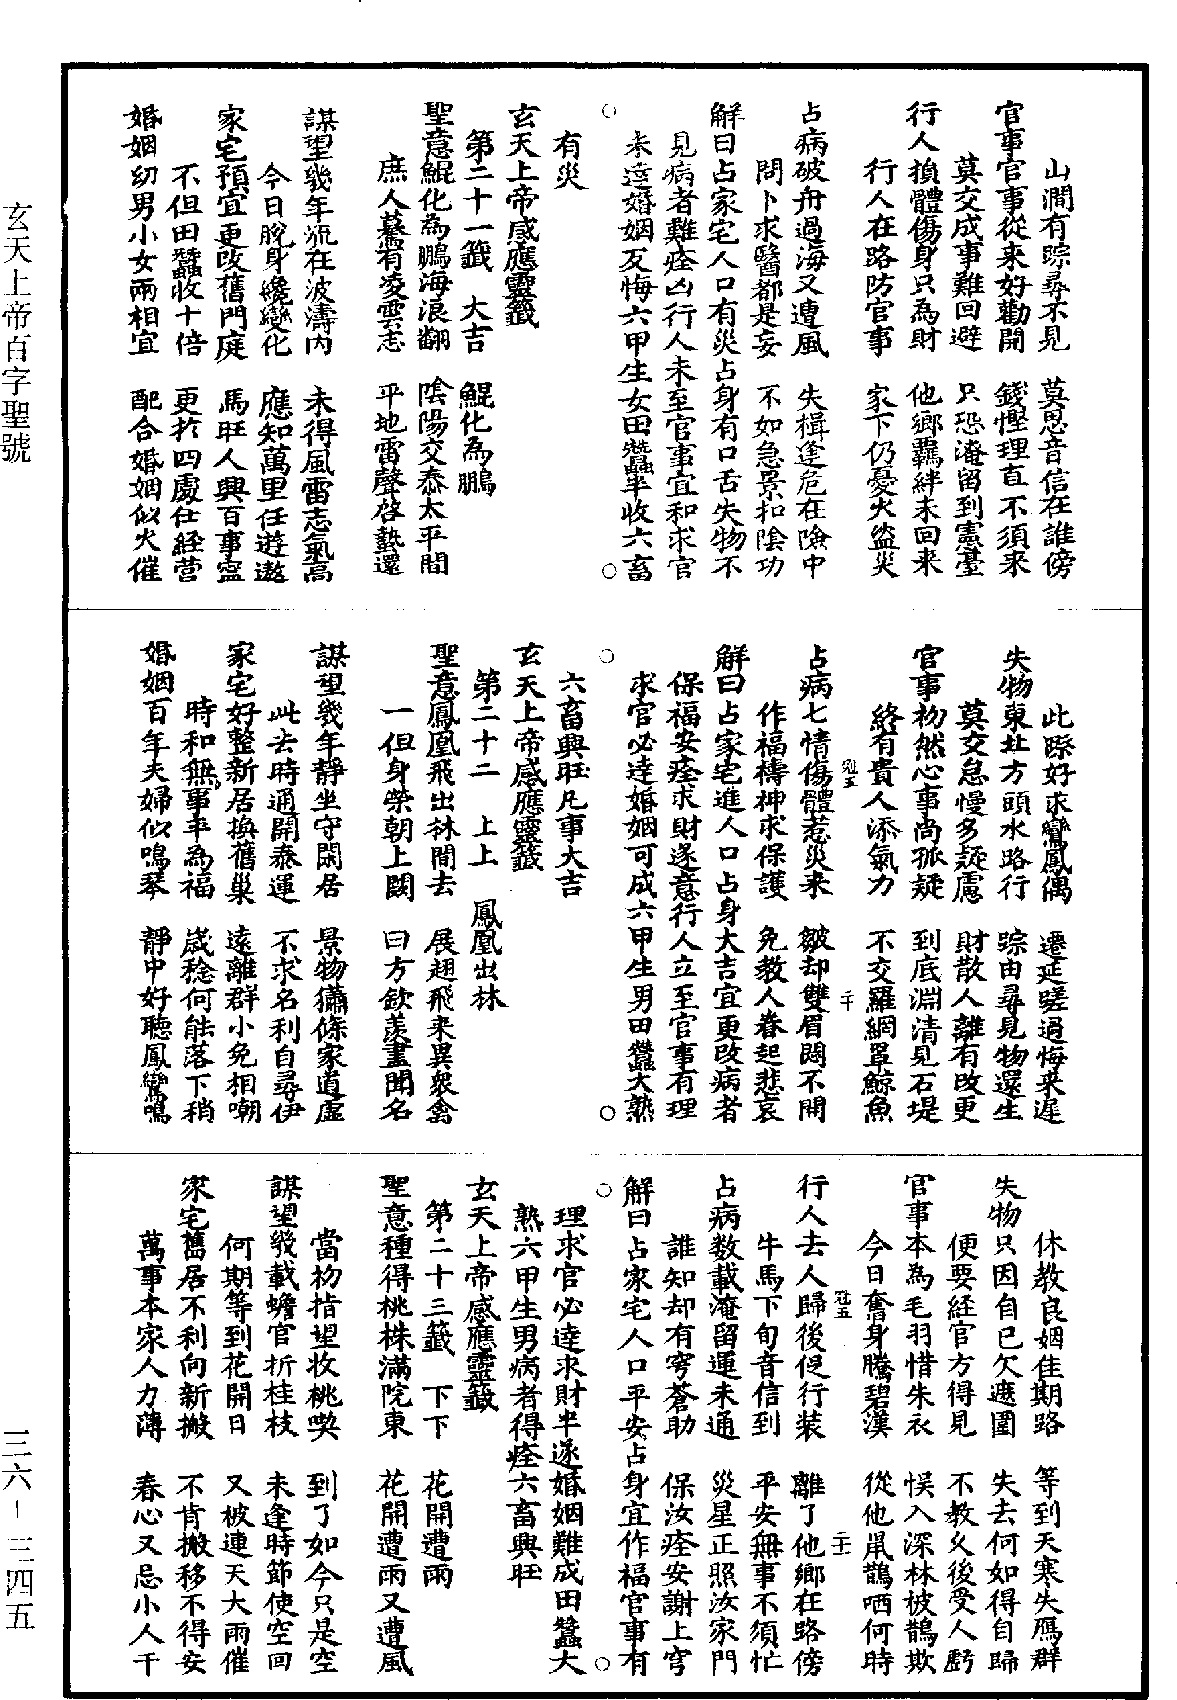 山澗有踪尋不見　莫思音信在誰傍
官事官事從來好勸開　錢慳理直不須來
莫交成事難回避　只恐淹留到憲臺
行人損體傷身只為財　他鄉羈絆未回來
行人在路防官事　家下仍憂火盜災
占病破舟過海又遭風　失楫逢危在險中
問卜求醫都是妄　不如急景扣陰功
解曰占家宅人口有災占身有口舌失物不
見病者難痊凶行人未至官事宜和求官
未達婚姻反悔六甲生女田蠶半收六畜
有災
玄天上帝感應靈籤
第二十一籤　大吉　鯤化為鵬
聖意鯤化為鵬海浪翻　陰陽交泰太平間
庶人驀有凌雲志　平地雷聲啓蟄還
謀望幾年沉在波濤内　未得風雷志氣高
今日脫身纔變化　應知萬里任遊遨
家宅預宜更改舊門庭　馬旺人興百事寧
不但田蠶收十倍　更於四處仕經營
婚姻幼男小女兩相宜　配合婚姻似火催
此際好求鸞鳳偶　遷延蹉過悔來遲
失物東北方頭水路行　踪由尋見物還生
莫交怠慢多疑慮　財散人離有改更
官事初然心事尚孤疑　到底淵清見石堤
終有貴人添氣力　不交羅網罩鯨魚
占病七情傷體惹災來　皺却雙眉悶不開
作福禱神求保護　免教人眷起悲哀
解曰占家宅進人口占身大吉宜更改病者
保福安痊求財遂意行人立至官事有理
求官必達婚姻可成六甲生男田蠶大熟
六畜興旺凡事大吉
玄天上帝感應靈籤
第二十二　上上　鳳凰出林
聖意鳳凰飛出林間去　展翅飛來異衆禽
一但身榮朝上闕　曰方欽羨畫聞名
謀望幾年靜坐守閑居　景物獨條家道虛
此去時通開泰運　不求名利自尋伊
家宅好整新居換舊巢　遠離群小免相嘲
時和無事平為福　歲稔何能落下稍
婚姻百年夫婦似鳴琴　靜中好聽鳳鸞鳴
休教良姻佳期路　等到天寒失鴈群
失物只因自已欠遮圍　失去何如得自歸
便要經官方得見　不教久後受人虧
官事本為毛羽惜朱衣　悮入深林被鵲欺
今日奮身騰碧漢　從他鼡鵲哂何時
行人去人歸後促行裝　離了他鄉在路傍
牛馬下旬音信到　平安無事不須忙
占病数載淹留運未通　災星正照汝家門
誰知却有穹蒼助　保汝痊安謝上穹
解曰占家宅人口平安占身宜作福官事有
理求官必達求財半遂婚姻難成田蠶大
熟六甲生男病者得痊六畜興旺
玄天上帝感應靈籤
第二十三籤　下下　花開遭雨
聖意種得桃株滿院東　花開遭雨又遭風
當初指望收桃喫　到了如今只是空
謀望幾載蟾官折桂枝　未逢時節使空回
何期等到花開日　又被連天大雨催
家宅舊居不利向新搬　不肯搬移不得安
萬事本家人力薄　春心又忌小人干
冠五　二十
冠五　二十一
玄天上帝百字聖號
三六－三四五